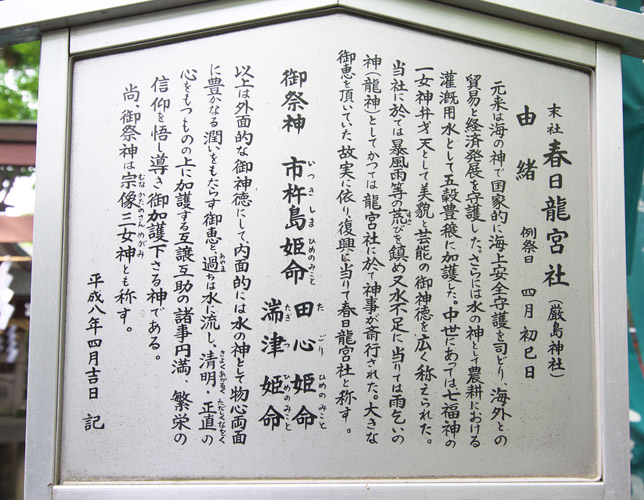 末社 春日龍宮社 (厳島神社)
由緒 例祭日 四月初巳日
元来は海の神で国家的に海上安全守護を司どり、海外との
貿易と経済発展を守護した。さらには水の神として農耕における
灌漑用水として五穀豊穣に加護した。中世にあっては七福神の
一女神弁才天として美貌と芸能の御神徳を広く称えられた。
当社に於ては暴風雨等の荒びを鎮め又水不足に当りては雨乞いの
神(龍神)としてかつては龍宮社に於て神事が斎行された。大きな
御恵を頂いていた故実に依り、復興に当りて春日龍宮社と称す。
御祭神 市杵島姫命 田心姫命 湍津姫命
以上は外面的な御神徳にして、内面的には水の神として物心両面
に豊かなる潤いをもたらす御恵と過は水に流し、清明・正直の
心をもつものの上に加護する互譲互助の諸事円満、繁栄の
信仰を悟し導き御加護下さる神である。
尚、御祭神は宗像三女神とも称す。
平成八年四月吉日 記